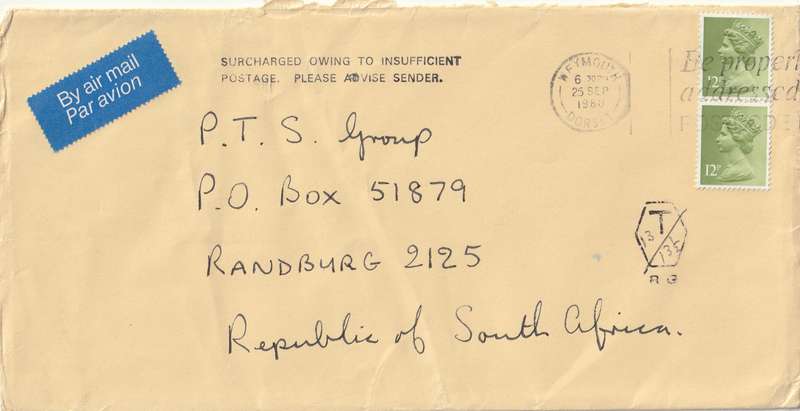 By air mail
Par avion
SURCHARGED OWING TO INSUFFICIENT
POSTAGE. PLEASE ADVISE SENDER.
WEYMOUTH
25 SEP
1980
DORSET
Be properl
addressed
12P
12P
P.T.S. Group
P.O. Box 51879
RANDBURG 2125
Republic of South Africa.
T
13
RG